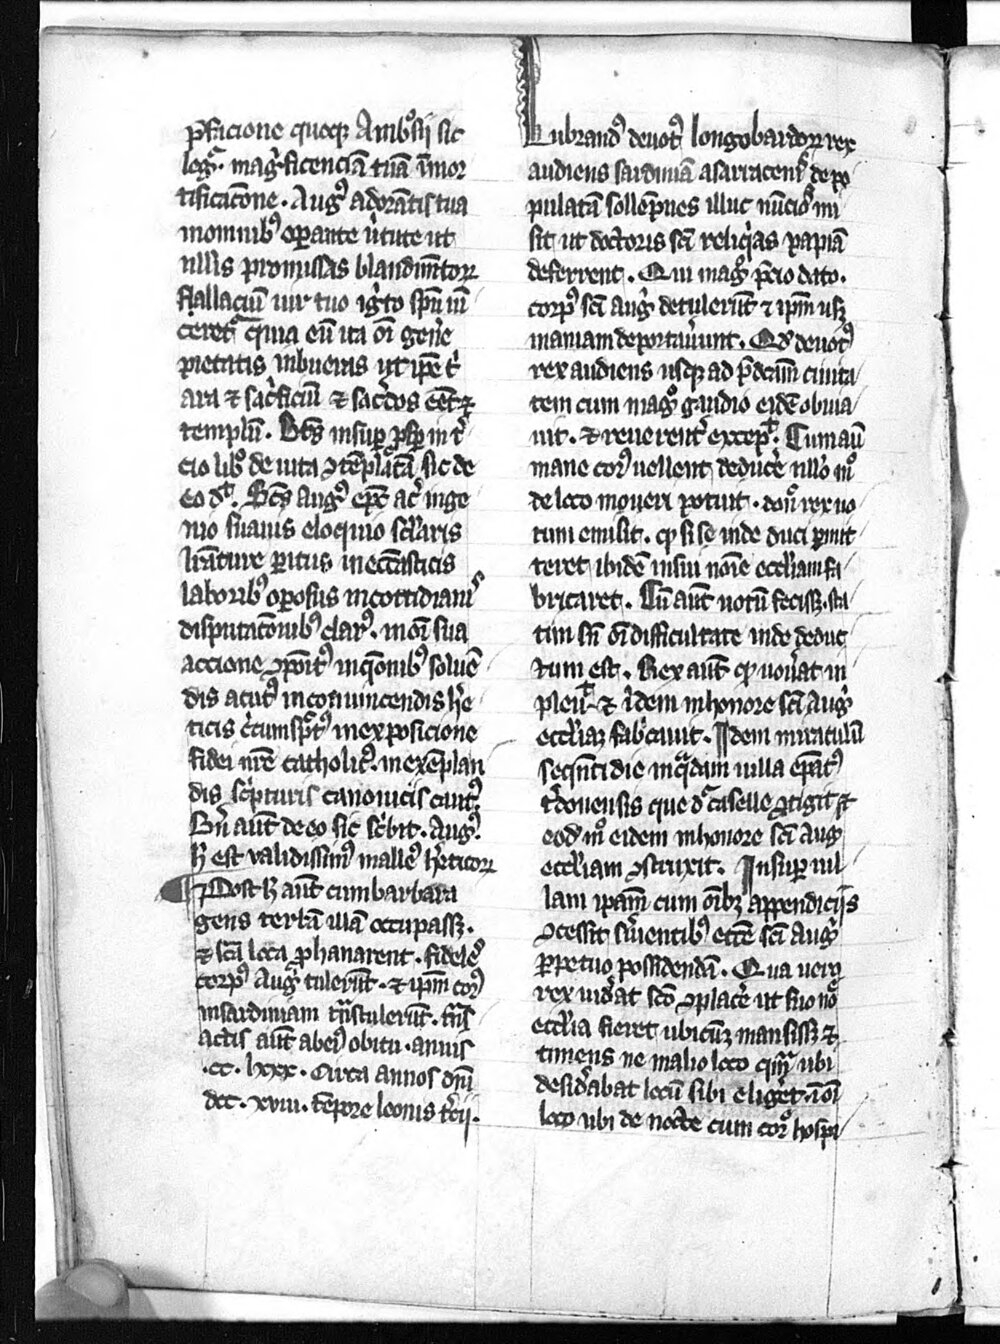 p̄facione quoqꝫ Ambꝰsij sic
legr̄. magͥficenciā tuā īmor
tificac̄one. Augꝰ adorātis tua
in omnibꝰ oꝑante ũtute ut
nllīs promissas blandimētoꝝ
fallaciū iur tuo igͥto spū uī
ceretͬ quia eū ita oī geñe
pietatis inbueras ut ip̄e tͥ
ara ⁊ sacͥficiū ⁊ sac̄dos eēt ⁊
templū. Bt̄s insuꝑ ꝓsꝑ in tͥ
cio libͦ de uita ꝯtēplatā sic de
eo dt̄. Sc̄s augꝰ ep̄c acͥ inge
nio suauis eloquio sc̄laris
lr̄ature ꝑitus in ecc̄asticis
laboribꝰ oꝑosus in cottidianͥs
disputac̄onibꝰ clarꝰ. in oī sua
accione ꝯpoītꝰ in qōnibꝰ soluē
dis acutꝰ in conuincendis he
ticis cͥcumspctꝰ in exposicione
fidei nr̄e catholicꝰ. in explan
dis sc̄pturis canonicis cautꝰ.
Bñ aūt de eo sic sc̄bit. Augꝰ.
h̄ est validissimꝰ malleꝰ heticoꝝ
Post h̄ aūt cum barbara
gens terrā illā occupassꝫ.
⁊ sc̄a loca ꝓphanarent. fideles
corpꝰ Augͥ tulerūt. ⁊ ip̄m corꝰ
in sardiniam tn̄stulerūt. tn̄s
actis aūt ab eiꝰ obitu. annis
.cc. lxxx. Circa annos dnī
dcc. xviii. tēpore leonis tc̄ij.
Lubrandꝰ deuotꝰ longobardoꝝ rex
audiens sardiniā a sarracenͥs depo
pulatā sollēpnes illuc nūcioꝰ mi
sit ut doctoris sc̄i reliqͥas papiā
deferrent. Qui magͦ p̄cio dato.
corpꝰ sc̄i augͥ detulerūt ⁊ ip̄m usqꝫ
manuam deportauerunt. Qd̄ deuotꝰ
rex audiens usqꝫ ad p̄dc̄am ciuita
tem cum magͦ gaudio eidē obuia
uit. ⁊ reuerentͬ excepᵗ. Cum aū
mane corꝰ uellent deducͬe nllo mͦ
de loco moueri potuit. donͦ rex uo
tum emisit. ꝙ si se inde duci ꝑmit
teret ibidē in sui noīe eccl̄iam fa
bricaret. Cū aūt uotū fecissꝫ. sta
tim sn̄ oī difficultate inde deduc
tum est. Rex aūt ꝙ uouat in
pleuᵗ ⁊ ıdem in honore sc̄i augͥ
eccl̄iaꝫ fabͥcauit. Idem miraculū
seqn̄ti die in qͣdam uilla ep̄atꝰ
tͬdonensis que dr̄ caselle ꝯtigit ⁊
eodͦ mͦ eidem in honore sc̄i aug
eccl̄iam ꝯstruxit. Insuꝑ uil
lam ipam̄ cum oībꝫ appendiciis
ꝯcessit sꝰuientibꝰ ecc̄e sc̄i augͥ
ꝑpetuo possidendā. Qua uero
rex uidͬat sc̄o ꝯplacͬe ut suo nͦ
eccl̄ia fieret ubicūqꝫ mansissꝫ ⁊
timens ne malio loco qm̄ ubi
desidͬabat locū sibi eligͬet. ı oī
loco ubi de nocte cum corͦ hospi